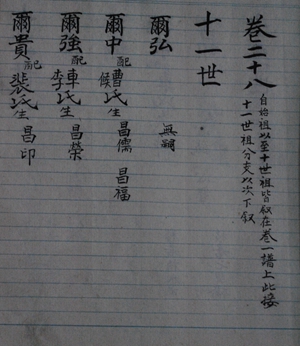 卷二十八
自始祖以至十世祖皆叙在卷一譜上此接
十一世祖分支以次下叙
十一世
爾弘 無嗣
爾中 配曹侯氏生 昌儒 昌福
爾強 配車李氏生 昌榮
爾貴 配裴氏生 昌印